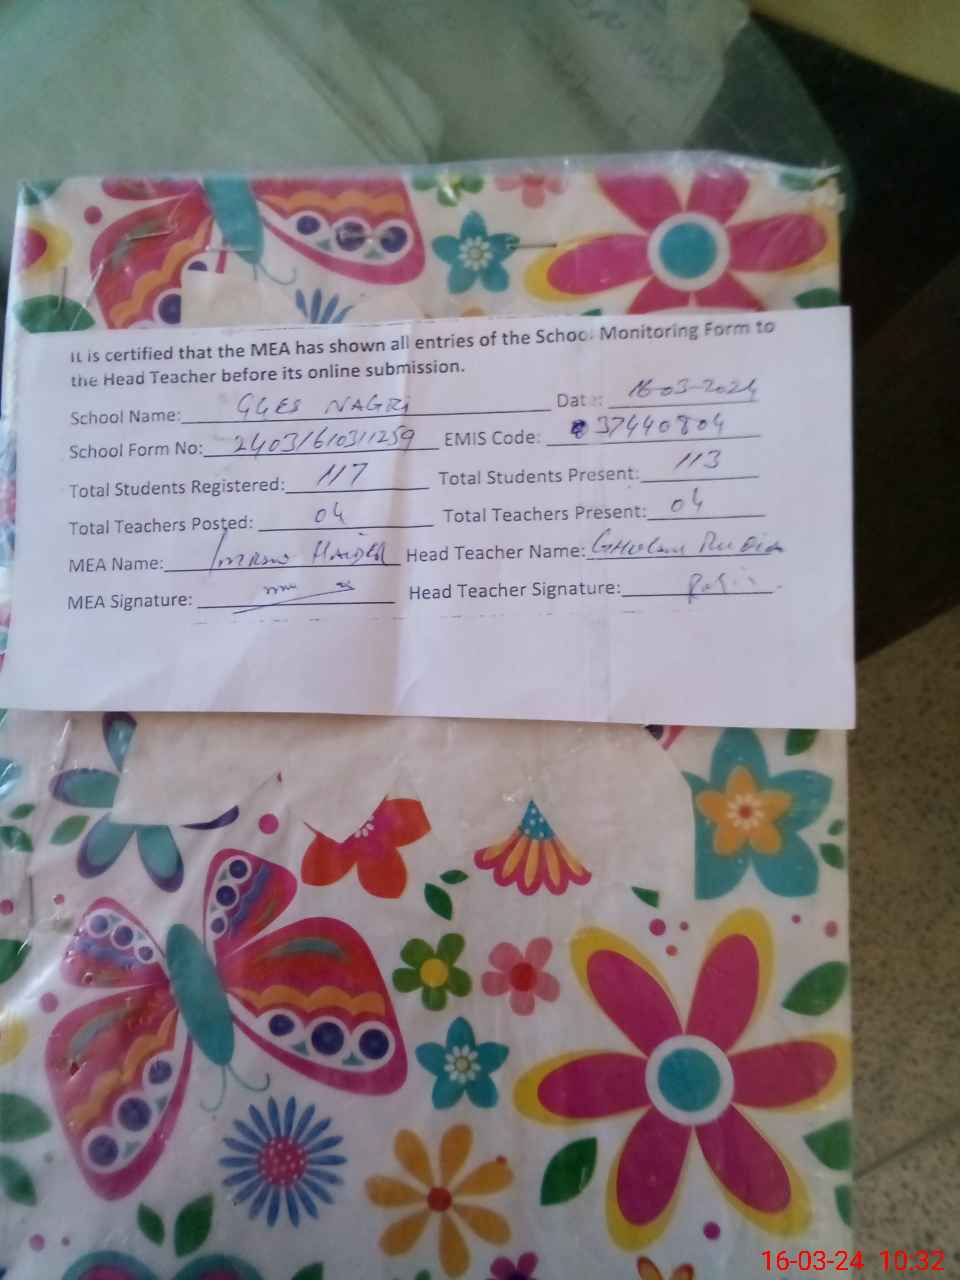 It is certified that the MEA has shown all entries of the School Monitoring Form to
the Head Teacher before its online submission.
School Name: GGES NAGRI Date: 16-03-2024
School Form No: 2403161031259 EMIS Code: 37440804
Total Students Registered: 117 Total Students Present: 113
Total Teachers Posted: 04 Total Teachers Present: 04
MEA Name: Imran Haider Head Teacher Name: Ghulam
MEA Signature: Head Teacher Signature:
16-03-24 10:32